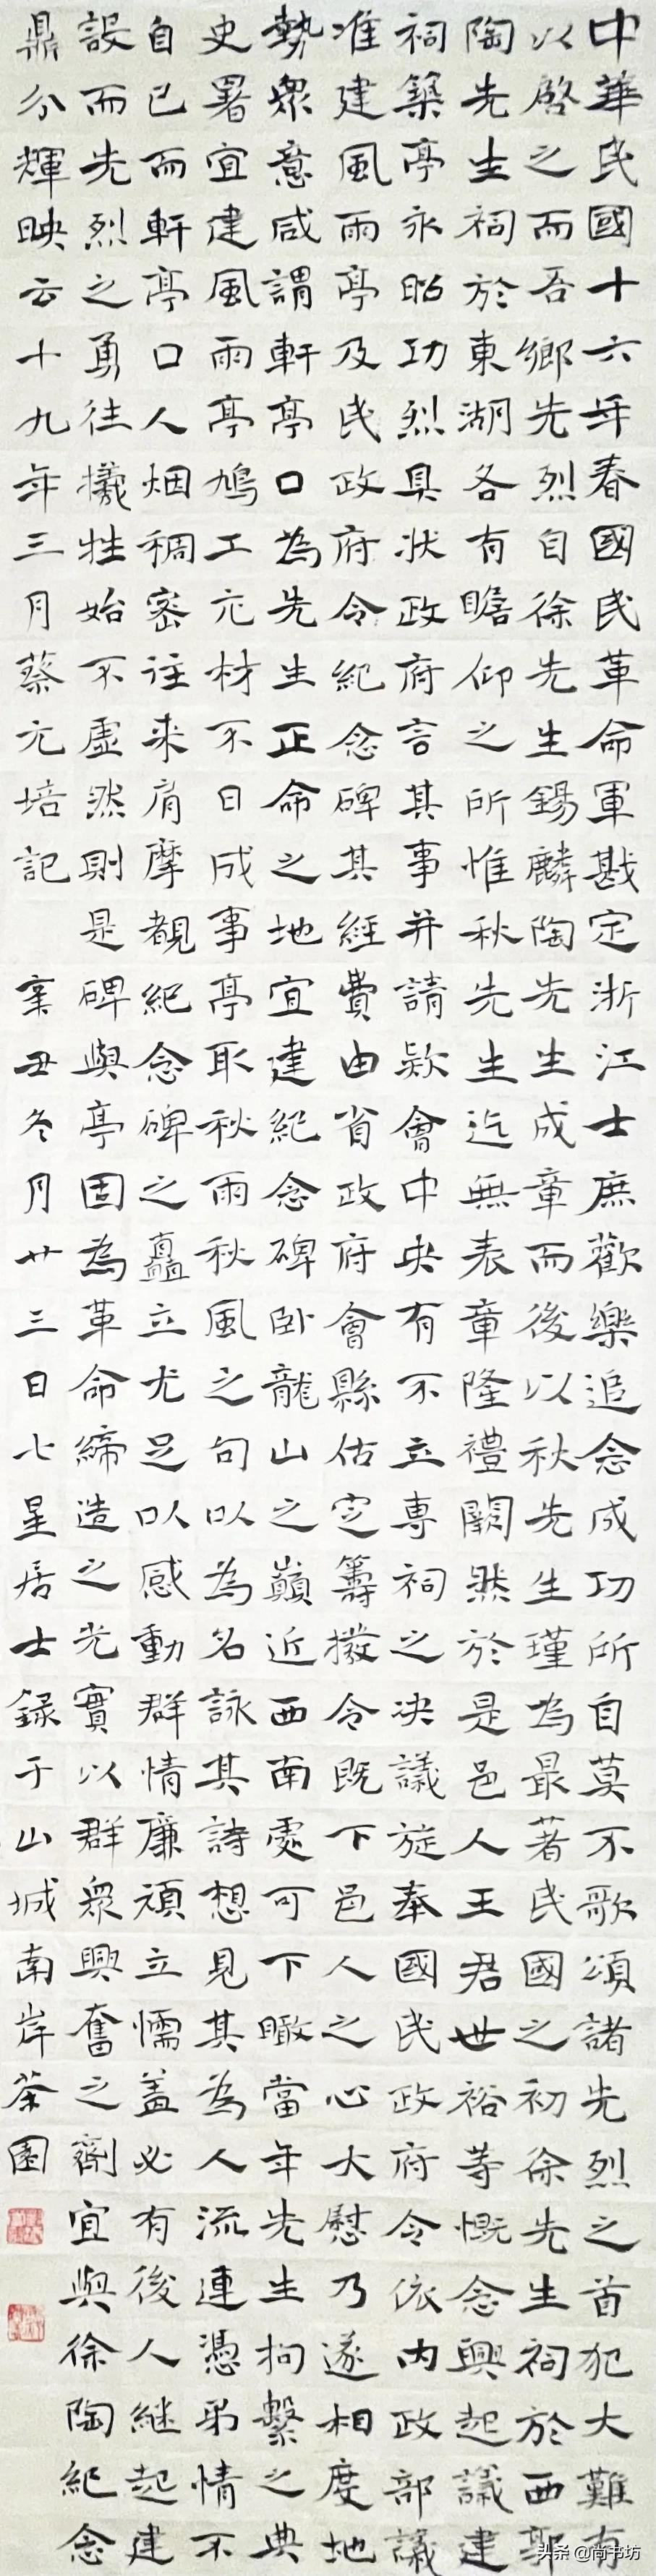 中華民國十六年春國民革命軍戡定浙江士庶歡樂追念成功所自莫不歌頌諸先烈之首犯大難有
以啓之而吾鄉先烈自徐先生錫麟陶先生成章而後以秋先生瑾為最著民國之初徐先生祠於西郭
陶先生祠於東湖各有瞻仰之所惟秋先生迄無表章隆禮闕然於是邑人王君世裕等慨念興起議建
祠築亭永昭功烈具狀政府言其事并請款會中央有不立專祠之决議旋奉國民政府令依内政部議
准建風雨亭及民政府令紀念碑其經費由省政府會縣估定籌撥令既下邑人之心大慰乃遂相度地
勢衆意咸謂軒亭口為先生正命之地宜建紀念碑卧龍山之巔近西南處可下瞰當年先生拘繫之典
史署宜建風雨亭鳩工庀材不日成事亭取秋雨秋風之句以為名詠其詩想見其為人流連憑弔情不
自已而軒亭口人烟稠密往来肩摩覩紀念碑之矗立尤足以感動群情廉頑立懦蓋必有後人継起建
設而先烈之勇往犧牲始不虛然則是碑與亭固為革命締造之光實以群衆興奮之劑宜與徐陶紀念
鼎分輝映云十九年三月蔡元培記 辛丑冬月廿三日七星居士録于山城南岸茶園
头条 @尚书坊